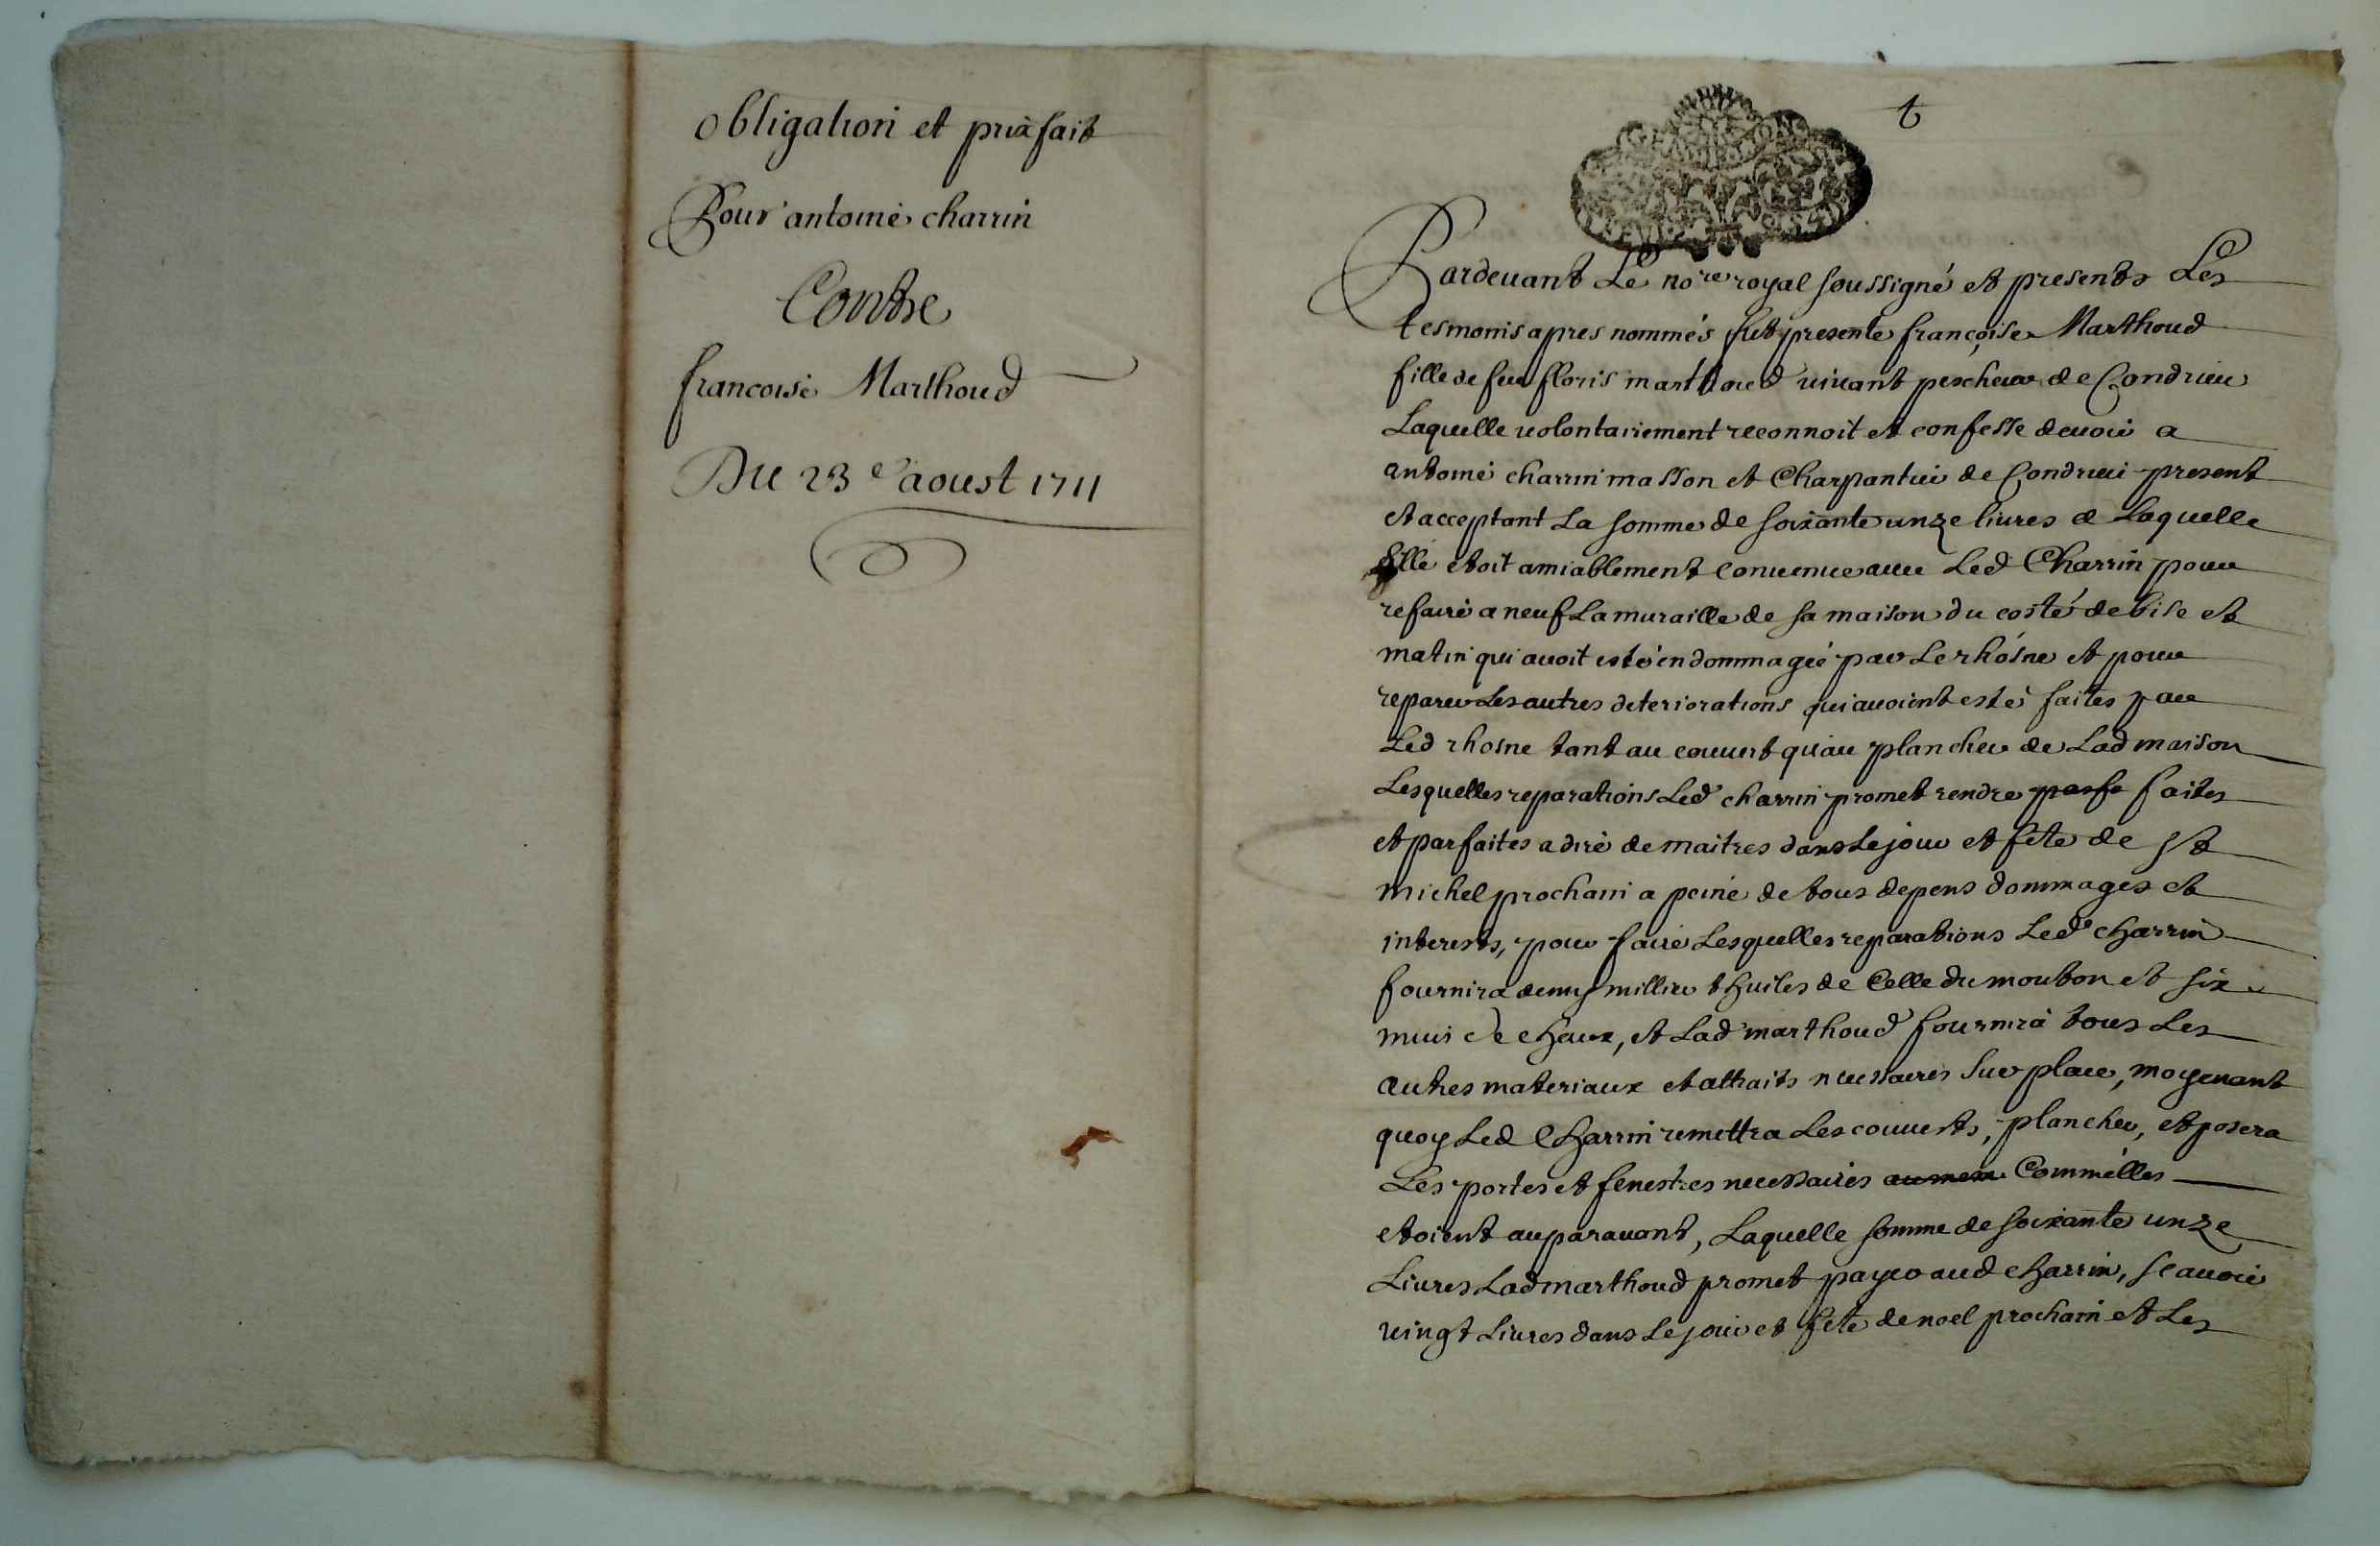 obligation et prixfait
Pour antoine charrin
Contre
francoise Marthoud
Du 23e aoust 1711
Pardevant Le nore royal soussigné et presents Les
tesmoins apres nommés fut presente françoise Marthoud
fille de feu floris marthoud vivant pescheur de Condrieu
Laquelle volontairement reconnoit et confesse devoir a
antoine charrin masson et Charpantier de Condrieu present
et acceptant La somme de soixante unze livres a Laquelle
Elle etoit amiablement convenue avec Led Charrin pour
refaire a neuf La muraille de sa maison du costé de bise et
matin qui avoit esté endommagée par Le rhosne et pour
reparer Les autres deteriorations qui avoient esté faites par
Led rhosne tant au couvert qu'au plancher de Lad maison
Lesquelles reparations Led charrin promet rendre parfa faites
et parfaites a dire de maitres dans Le jour et fete de st
michel prochain a peine de tous depens dommages et
interests, pour faire Lesquelles reparations Led charrin
fournira demy millier thuiles de Celle du mouton et six
muis de chaux, et Lad marthoud fournira tous Les
autres materiaux et attraits necessaires sur place, moyenant
quoy Led Charrin remettra Les couverts, plancher, et posera
Les portes et fenestres necessaires Comme elles
etoient auparavant, Laquelle somme de soixante unze
Livres Lad marthoud promet payer aud charrin, scavoir
vingt Livres dans Le jour et fete de noel prochain et Les